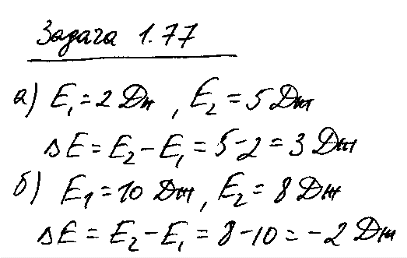 Задача 1.77
а) E₁ = 2 Дж, E₂ = 5 Дж
ΔE = E₂ - E₁ = 5 - 2 = 3 Дж
б) E₁ = 10 Дж, E₂ = 8 Дж
ΔE = E₂ - E₁ = 8 - 10 = -2 Дж